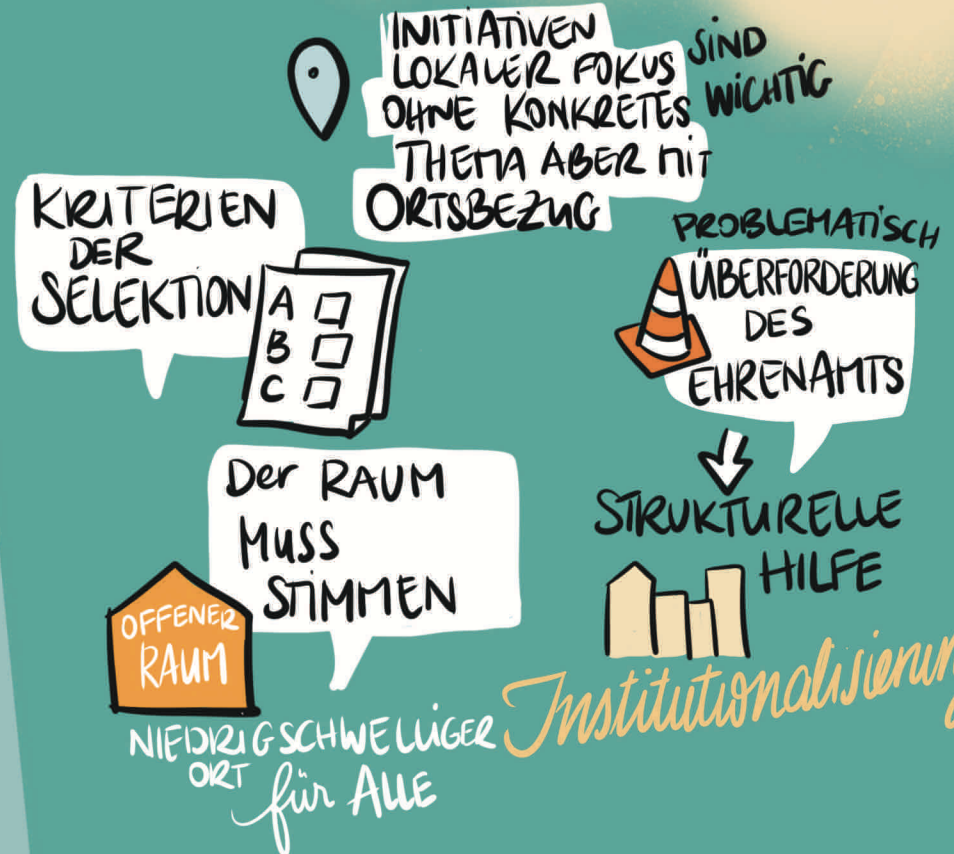 INITIATIVEN
LOKALER FOKUS
OHNE KONKRETES
THEMA ABER MIT
ORTSBEZUG
SIND
WICHTIG
KRITERIEN
DER
SELEKTION
A
B
C
PROBLEMATISCH
ÜBERFORDERUNG
DES
EHRENAMTS
STRUKTURELLE
HILFE
Institutionalisierung
Der RAUM
MUSS
STIMMEN
OFFENER
RAUM
NIEDRIGSCHWELLIGER
ORT
für ALLE